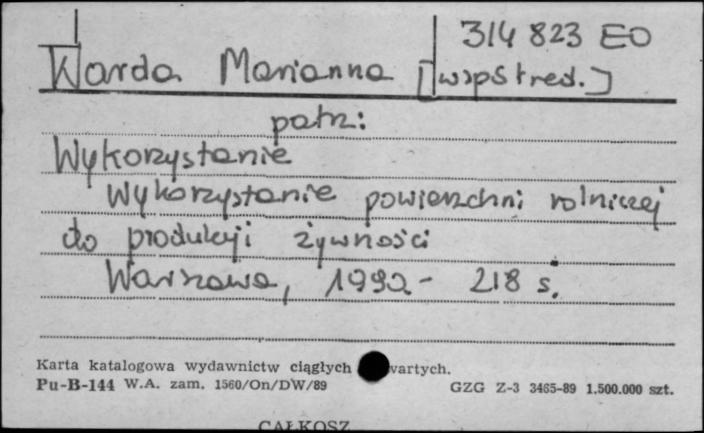 314 823 EO
Warda Marianna [współred.]
patrz:
Wykorzystanie
Wykorzystanie powierzchni rolniczej
do produkcji żywności
Warszawa, 1992 - 218 s.
Karta katalogowa wydawnictw ciągłych wartych.
Pu-B-144 W.A. zam. 1560/On/DW/89 GZG Z-3 3465-89 1.500.000 szt.
CAŁKOSZ